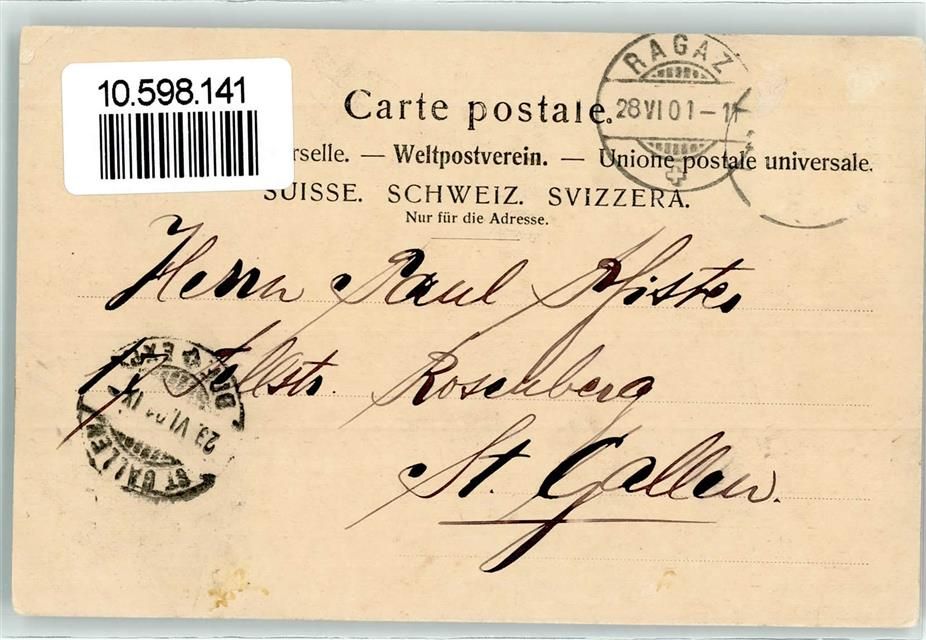 10.598.141
RAGAZ
28 VI 01 - 11
Carte postale.
rselle. — Weltpostverein. — Unione postale universale.
SUISSE. SCHWEIZ. SVIZZERA.
Nur für die Adresse.
Herrn Paul Pfister
Tellstr. Rosenberg
St. Gallen.
ST GALLEN
23 VI 01 IX